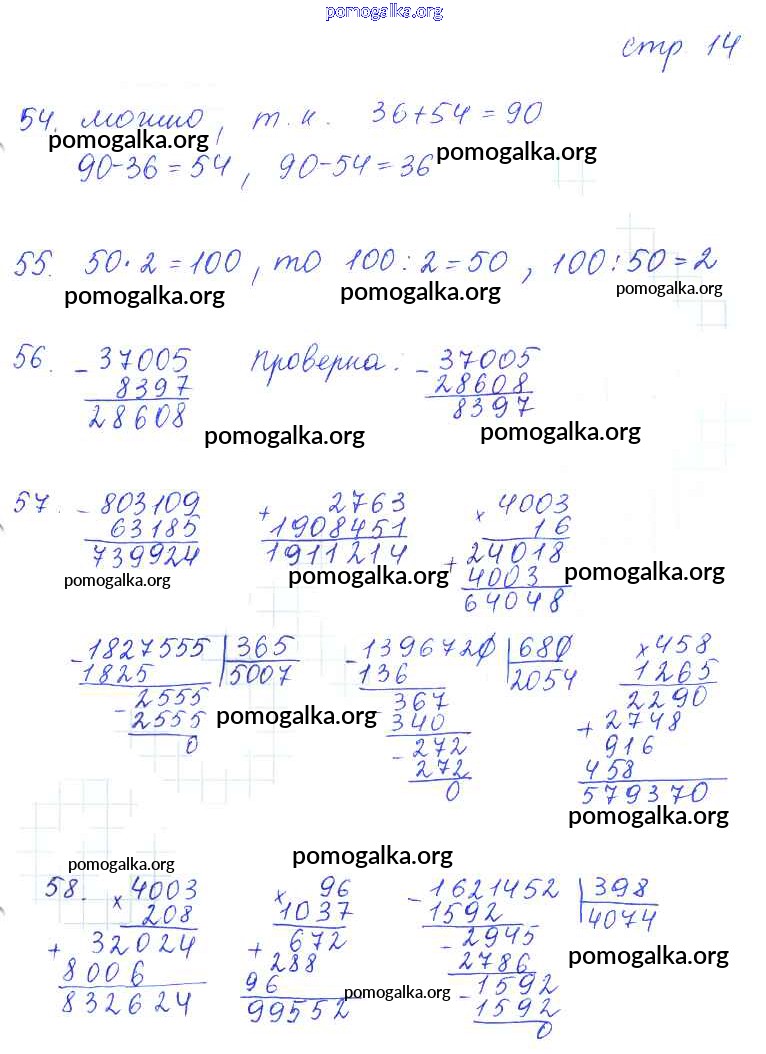 pomogalka.org
стр 14
54. можно, т.к. 36+54=90
pomogalka.org
90-36=54, 90-54=36
pomogalka.org
55. 50·2=100, то 100:2=50, 100:50=2
pomogalka.org pomogalka.org pomogalka.org
56. - 37005 Проверка: - 37005
8397 28608
28608 8397
pomogalka.org pomogalka.org
57. - 803109 + 2763 × 4003
63185 1908451 16
739924 1911214 + 24018
pomogalka.org pomogalka.org pomogalka.org
4003
64048
- 1827555 365 - 1396720 680 × 458
1825 5007 136 2054 1265
- 2555 367 2290
2555 340 + 2748
pomogalka.org
0 - 272 916
272 458
0 579370
pomogalka.org
pomogalka.org pomogalka.org
58. × 4003 × 96 - 1621452 398
208 1037 1592 4074
+ 32024 + 672 - 2945
8006 288 2786
pomogalka.org
832624 96 - 1592
pomogalka.org
99552 1592
0